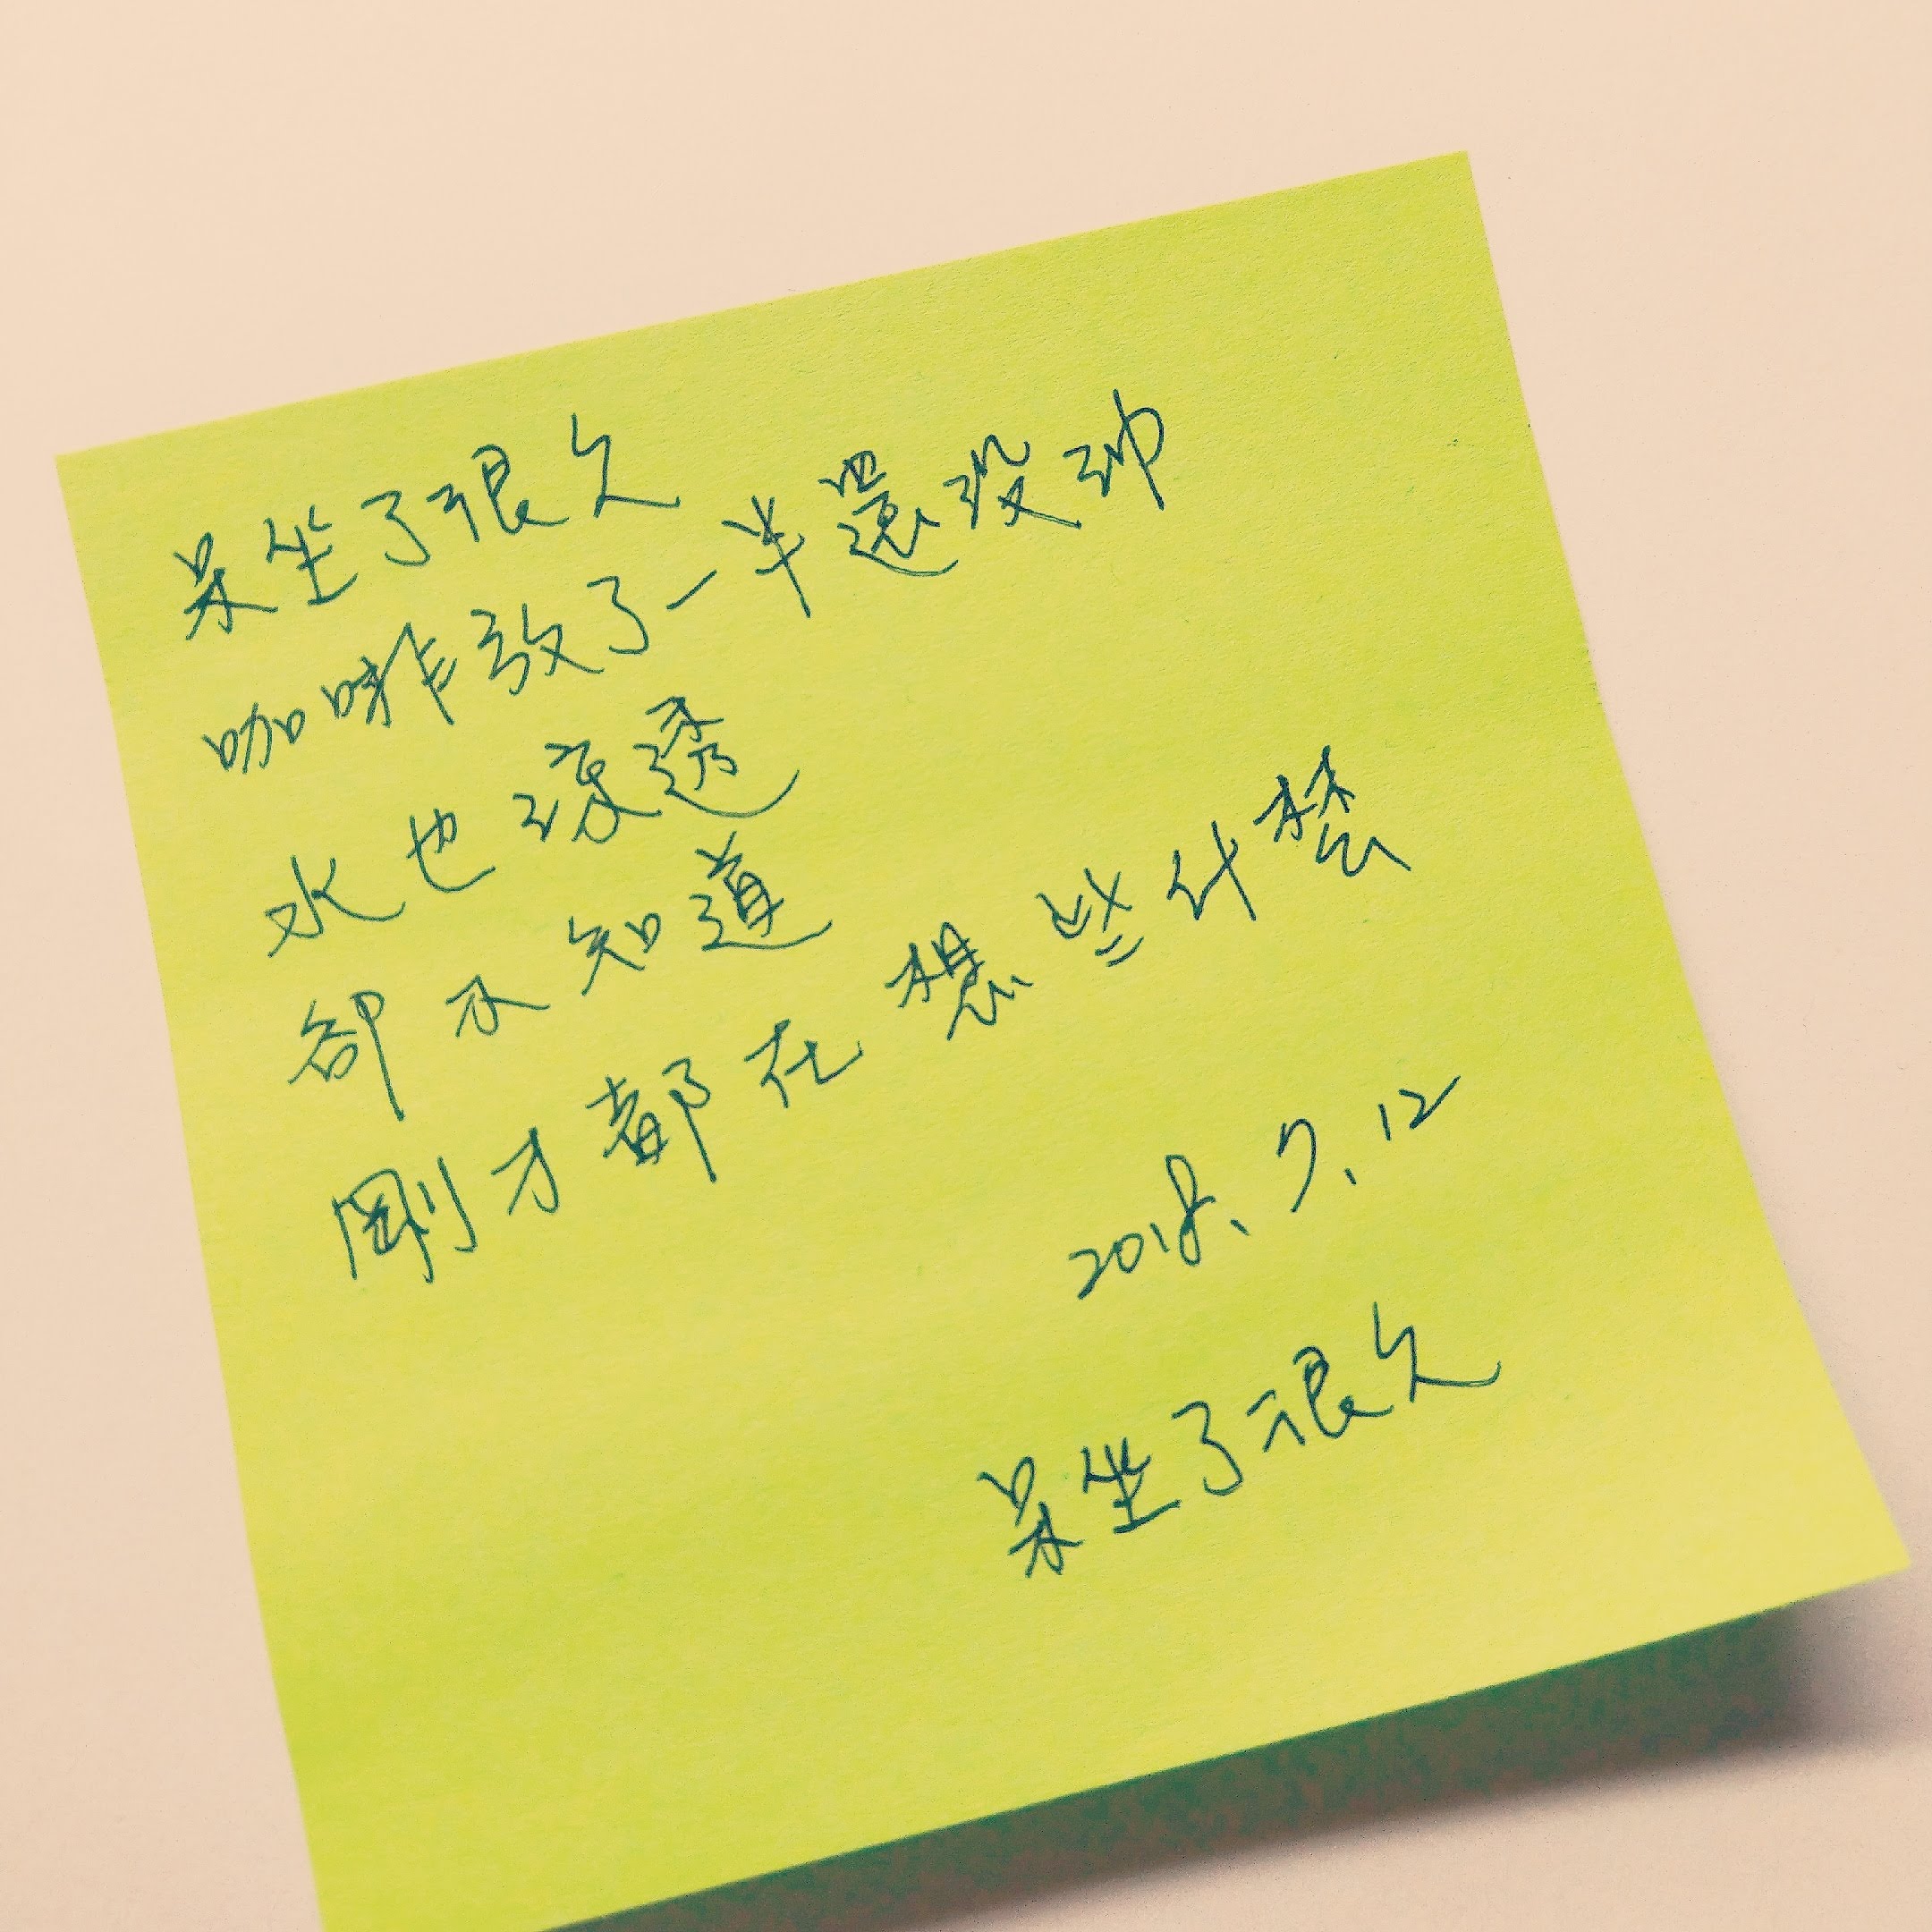 呆坐了很久
咖啡放了一半還没沖
水也涼透
卻不知道
剛才都在想些什麽
2018.7.12
呆坐了很久